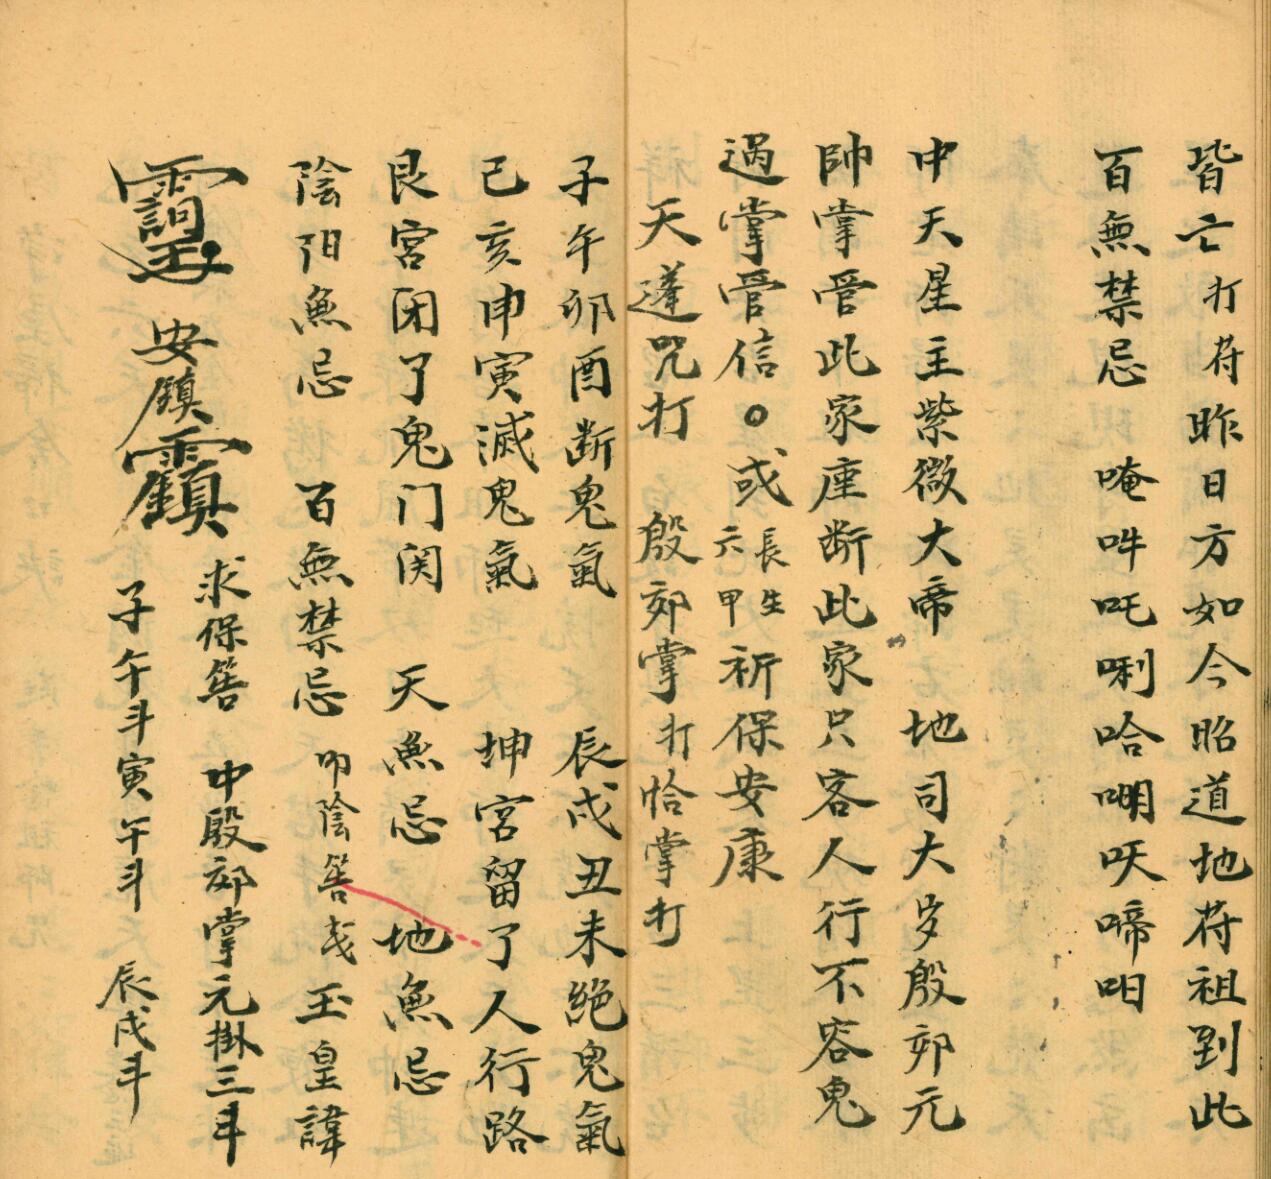 皆亡打符昨日方如今昭道地符祖到此
百無禁忌 唵吽吒唎哈㘈呋啼呬
中天星主紫微大帝 地司大岁殷郊元
帅掌管此家座断此家只客人行不容鬼
過掌管信○或長生六甲祈保安康
天蓬咒打 殷郊掌打恰掌打
子午卯酉断鬼氣 辰戌丑未絕鬼氣
已亥申寅滅鬼氣 坤宮留了人行路
艮宮闭了鬼门関 天無忌 地無忌
陰阳無忌 百無禁忌 叩陰筶 玉皇諱
安鎮 求保筶 中殷郊掌元掛三斗
子午斗寅午斗 辰戌斗